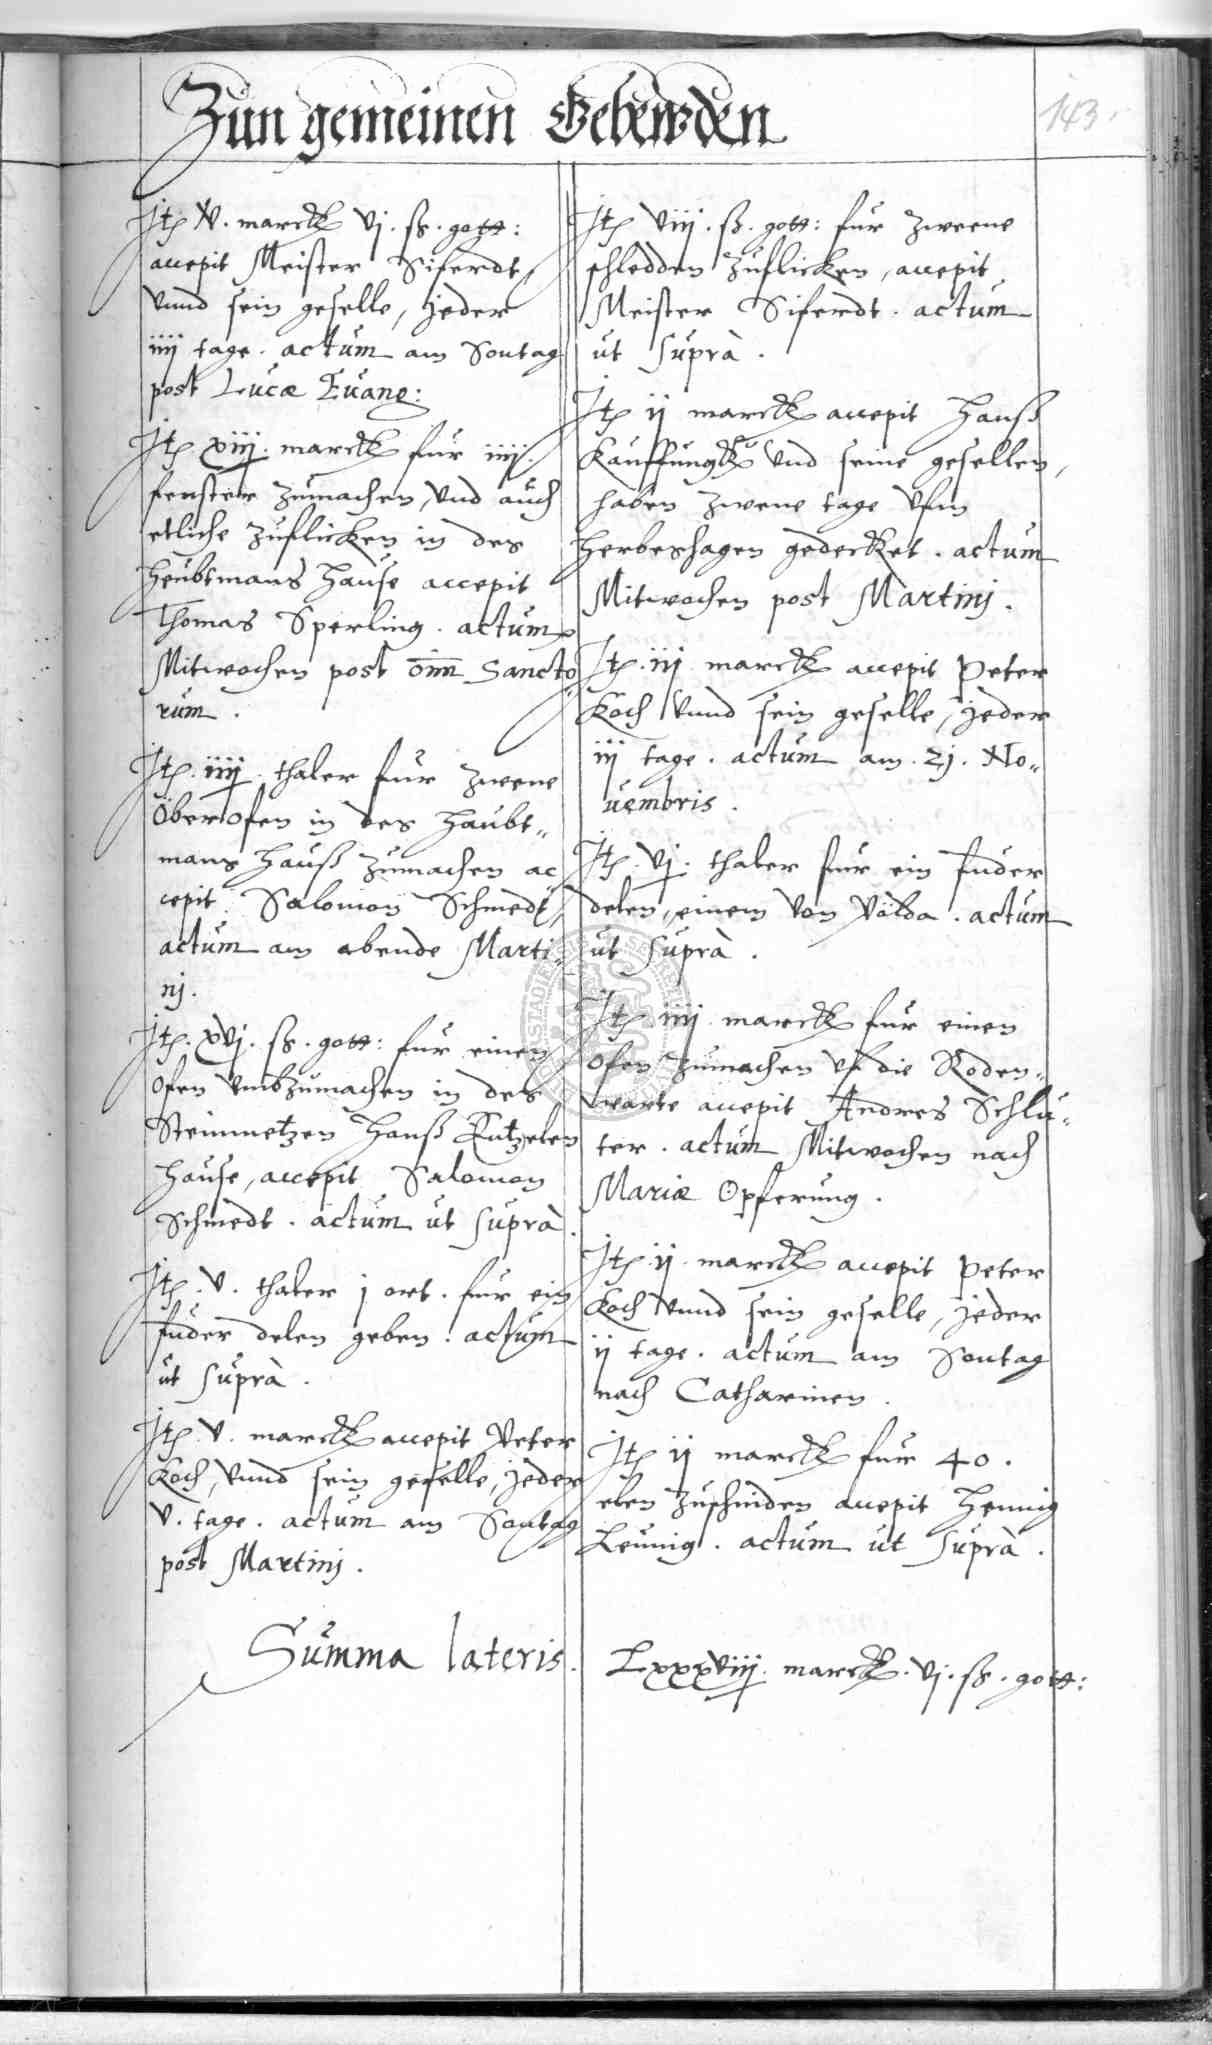 Zun gemeinen Gebewden
143.
Itē V. marckk vj. ß. gott:
accepit Meister Siferdt,
vnnd sein geselle, jeder
iiij tage. actum am Sontag
post Lucæ Euang:
Itē xiij. marckk fur iiij.
fenster zumachen, vnd auch
etliche zuflicken in des
heubtmans hause accepit
Thomas Sperling. actum
Mitwochen post oīm Sancto
rum.
Itē. iiij. thaler fur zweene
Öberofen in des haubt„
mans hauß zumachen ac
cepit Salomon Schmedt,
actum am abende Marti„
nj.
Itē. xvj. ß. gott: fur einen
ofen vmbzumachen in des
Steinmetzen Hanß Kutzelen
hause, accepit Salomon
Schmedt. actum ut suprà.
Itē. V. thaler j ort. fur ein
fuder delen geben. actum
ut suprà.
Itē. V. marckk accepit Peter
Koch, vnnd sein geselle, jeder
V. tage. actum am Sontag
post Martinj.
Itē viij. ß. gott: fur zweene
schledden zuflicken, accepit
Meister Siferdt. actum
ut suprà.
Itē ij marckk accepit Hanß
Kauffungkk vnd seine gesellen,
haben zwene tage vfm
herbeshagen gedeckket. actum
Mitwochen post Martinj.
Itē. iij marckk accepit Peter
Koch vnnd sein geselle, jeder
iij tage. actum am. 2j. No„
uembris.
Itē. vj. thaler fur ein fuder
delen, einem von Völda. actum
ut suprà.
Itē iiij marckk fur einen
ofen zumachen vf die Roden„
warte accepit Andres Schlu„
ter. actum Mitwochen nach
Mariæ Opferung.
Itē ij. marckk accepit Peter
Koch vnnd sein geselle, jeder
ij tage. actum am Sontag
nach Catharinen.
Itē ij marckk fur 40.
elen zuschniden accepit Hennig
Leunig. actum ut suprà.
Summa lateris. Lxxxviij. marckk. vj. ß. gott: